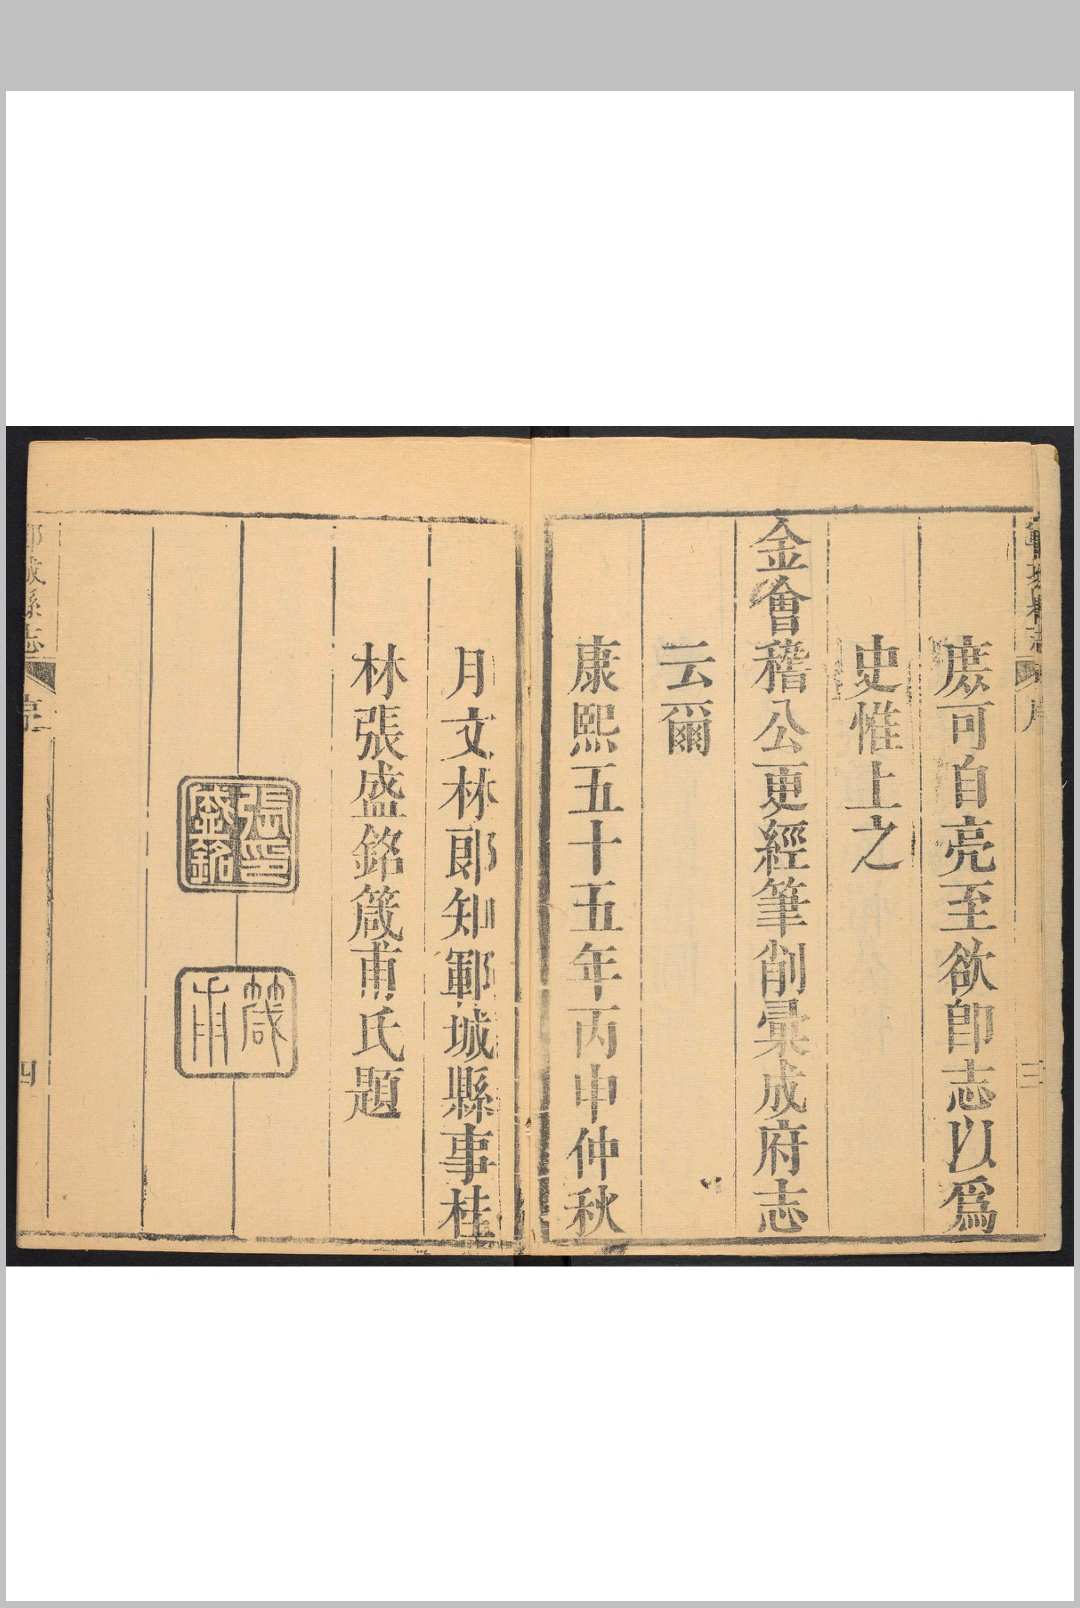 庶可自亮至欲卽志以爲
史惟上之
金會稽公更經筆削彙成府志
云爾
康熙五十五年丙申仲秋
月文林郎知鄆城縣事桂
林張盛銘箴甫氏題
張印盛銘
箴甫
鄆城縣志
序
三
四